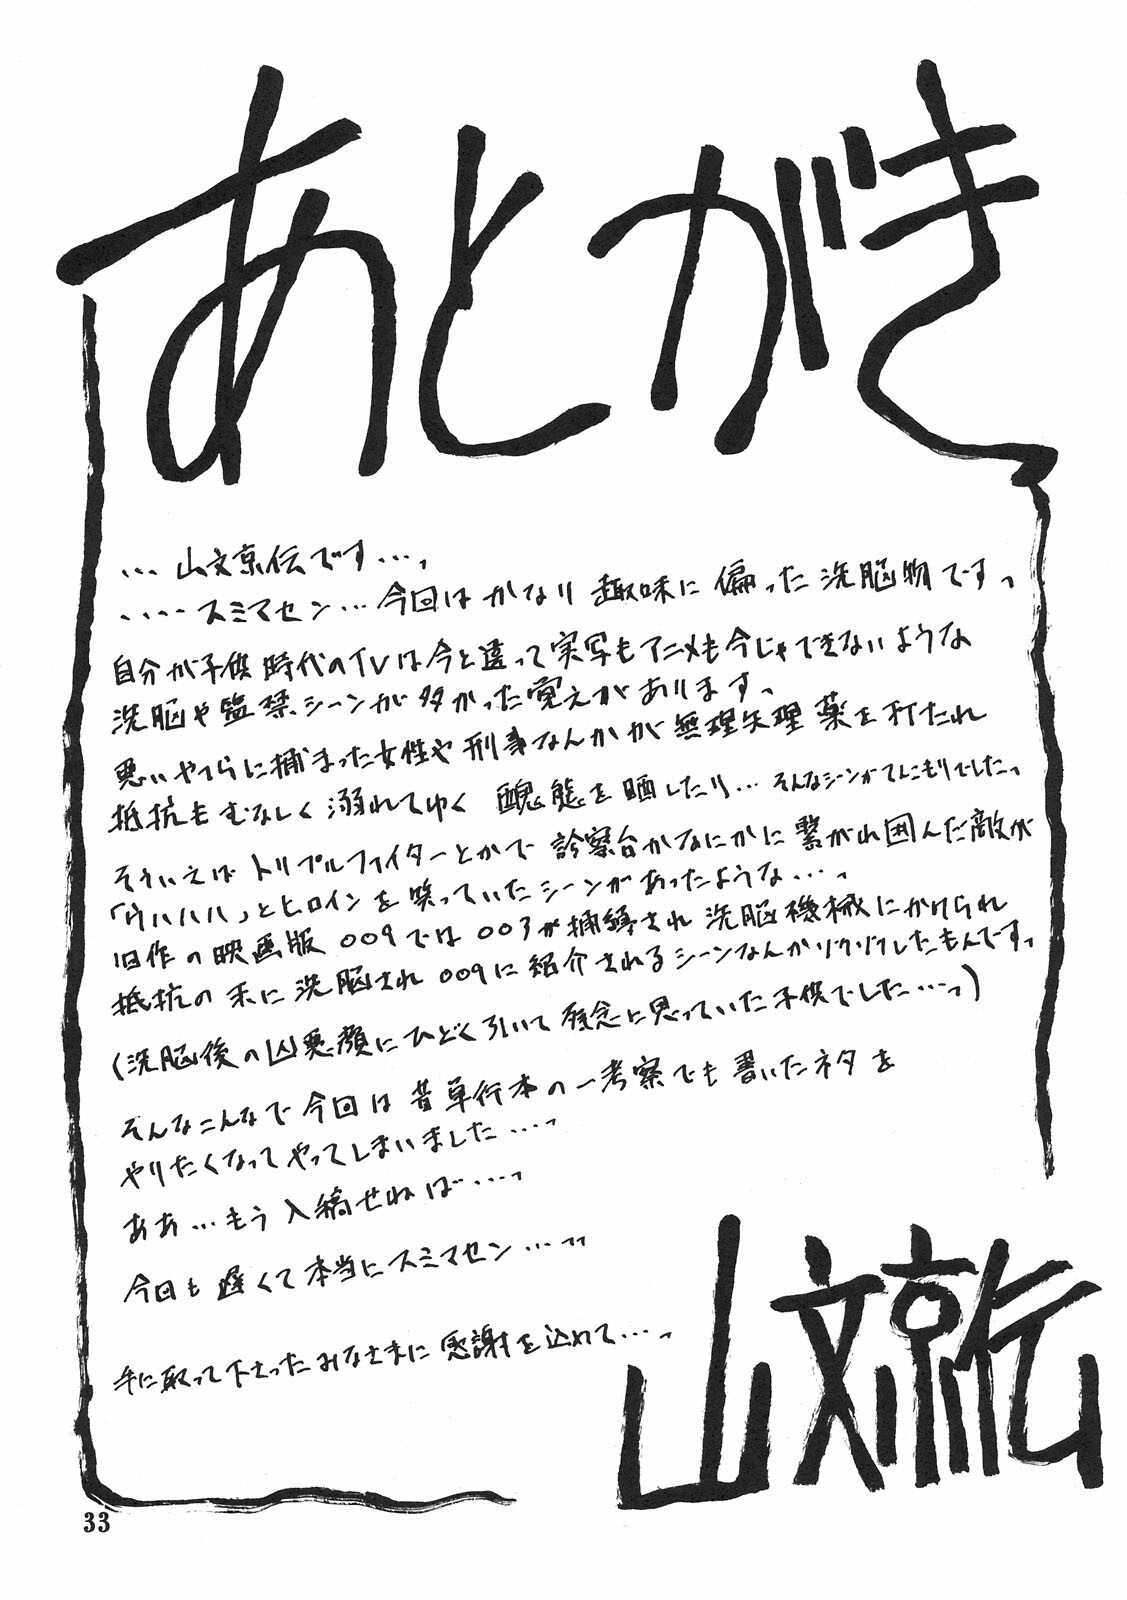 あとがき
・・・山文京伝です・・・っ
・・・・スミマセン・・・今回はかなり趣味に偏った洗脳物ですっ
自分が子供時代のTVは今と違って実写もアニメも今じゃできないような
洗脳や監禁シーンが多かった覚えがあります。
悪いやつらに捕まった女性や刑事なんかが無理矢理薬を打たれ
抵抗もむなしく溺れてゆく醜態を晒したり・・・そんなシーンがてんこもりでしたっ
そういえばトリプルファイターとかで診察台かなにかに繋がれ囲んだ敵が
「ウハハハ」とヒロインを笑っていたシーンがあったような・・・っ
旧作の映画版009では003が捕縛され洗脳機械にかけられ
抵抗の末に洗脳され009に紹介されるシーンなんかゾクゾクしたもんですっ
(洗脳後の凶悪顔にひどく引いて残念に思っていた子供でした・・・っ)
そんなこんなで今回は昔単行本の一考察でも書いたネタを
やりたくなってやってしまいました・・・っ
ああ・・・もう入稿せねば・・・っ
今回も遅くて本当にスミマセン・・・っっ
手に取って下さったみなさまに感謝を込めて・・・っ
山文京伝
33